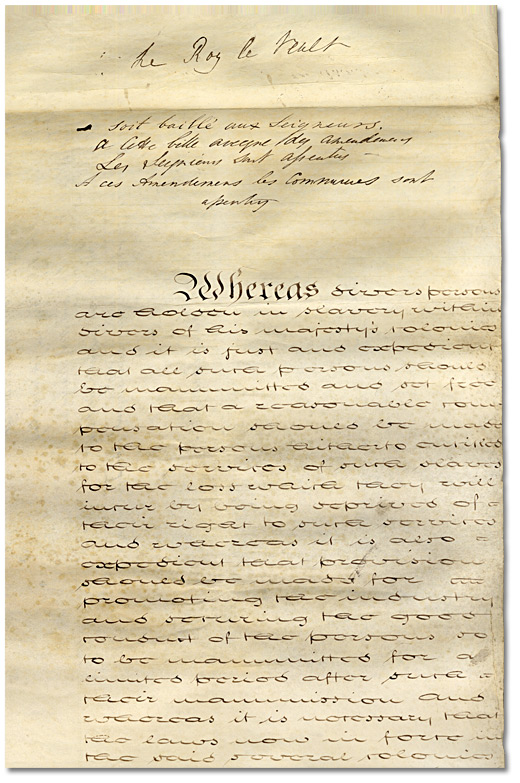 Le Roy le Veult
soit baillé aux Seigneurs.
A Cette bille avecque des amendemens
Les Seigneurs sont assentus
A ces Amendemens les Communes sont
assentus
Whereas divers persons
are holden in slavery within
divers of his majesty's colonies
and it is just and expedient
that all such persons should
be manumitted and set free
and that a reasonable com
pensation should be made
to the persons hitherto entitled
to the services of such slaves
for the loss which they will
incur by being deprived of
their right to such services
and whereas it is also
expedient that provision
should be made for
promoting the industry
and securing the good
conduct of the persons so
to be manumitted for a
limited period after such
their manumission and
whereas it is necessary that
the laws now in force in
the said several colonies